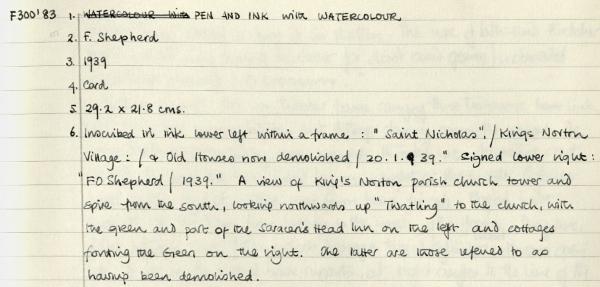 F300'83 1. WATERCOLOUR with PEN AND INK with WATERCOLOUR
2. F. Shepherd
3. 1939
4. Card
5. 29.2 x 21.8 cms.
6. Inscribed in ink lower left within a frame : "Saint Nicholas". / Kings Norton
Village : / & Old Houses now demolished / 20.1.39." Signed lower right :
"FO Shepherd / 1939." A view of King's Norton parish church tower and
spire from the south, looking northwards up "Twatling" to the church, with
the green and part of the Saracen's Head Inn on the left and cottages
fronting the Green on the right. The latter are those referred to as
having been demolished.